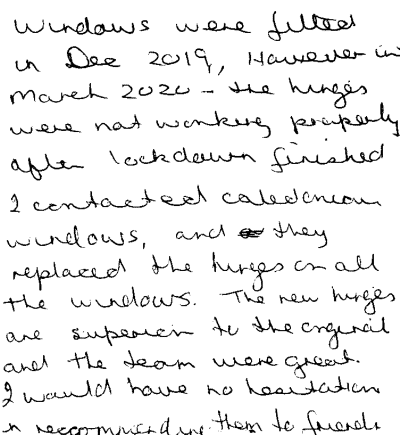 Windows were fitted
in Dec 2019, However in
March 2020 - the hinges
were not working properly
after lockdown finished
I contacted caledonian
windows, and they
replaced the hinges on all
the windows. The new hinges
are superior to the original
and the team were great.
I would have no hesitation
in recommending them to friends